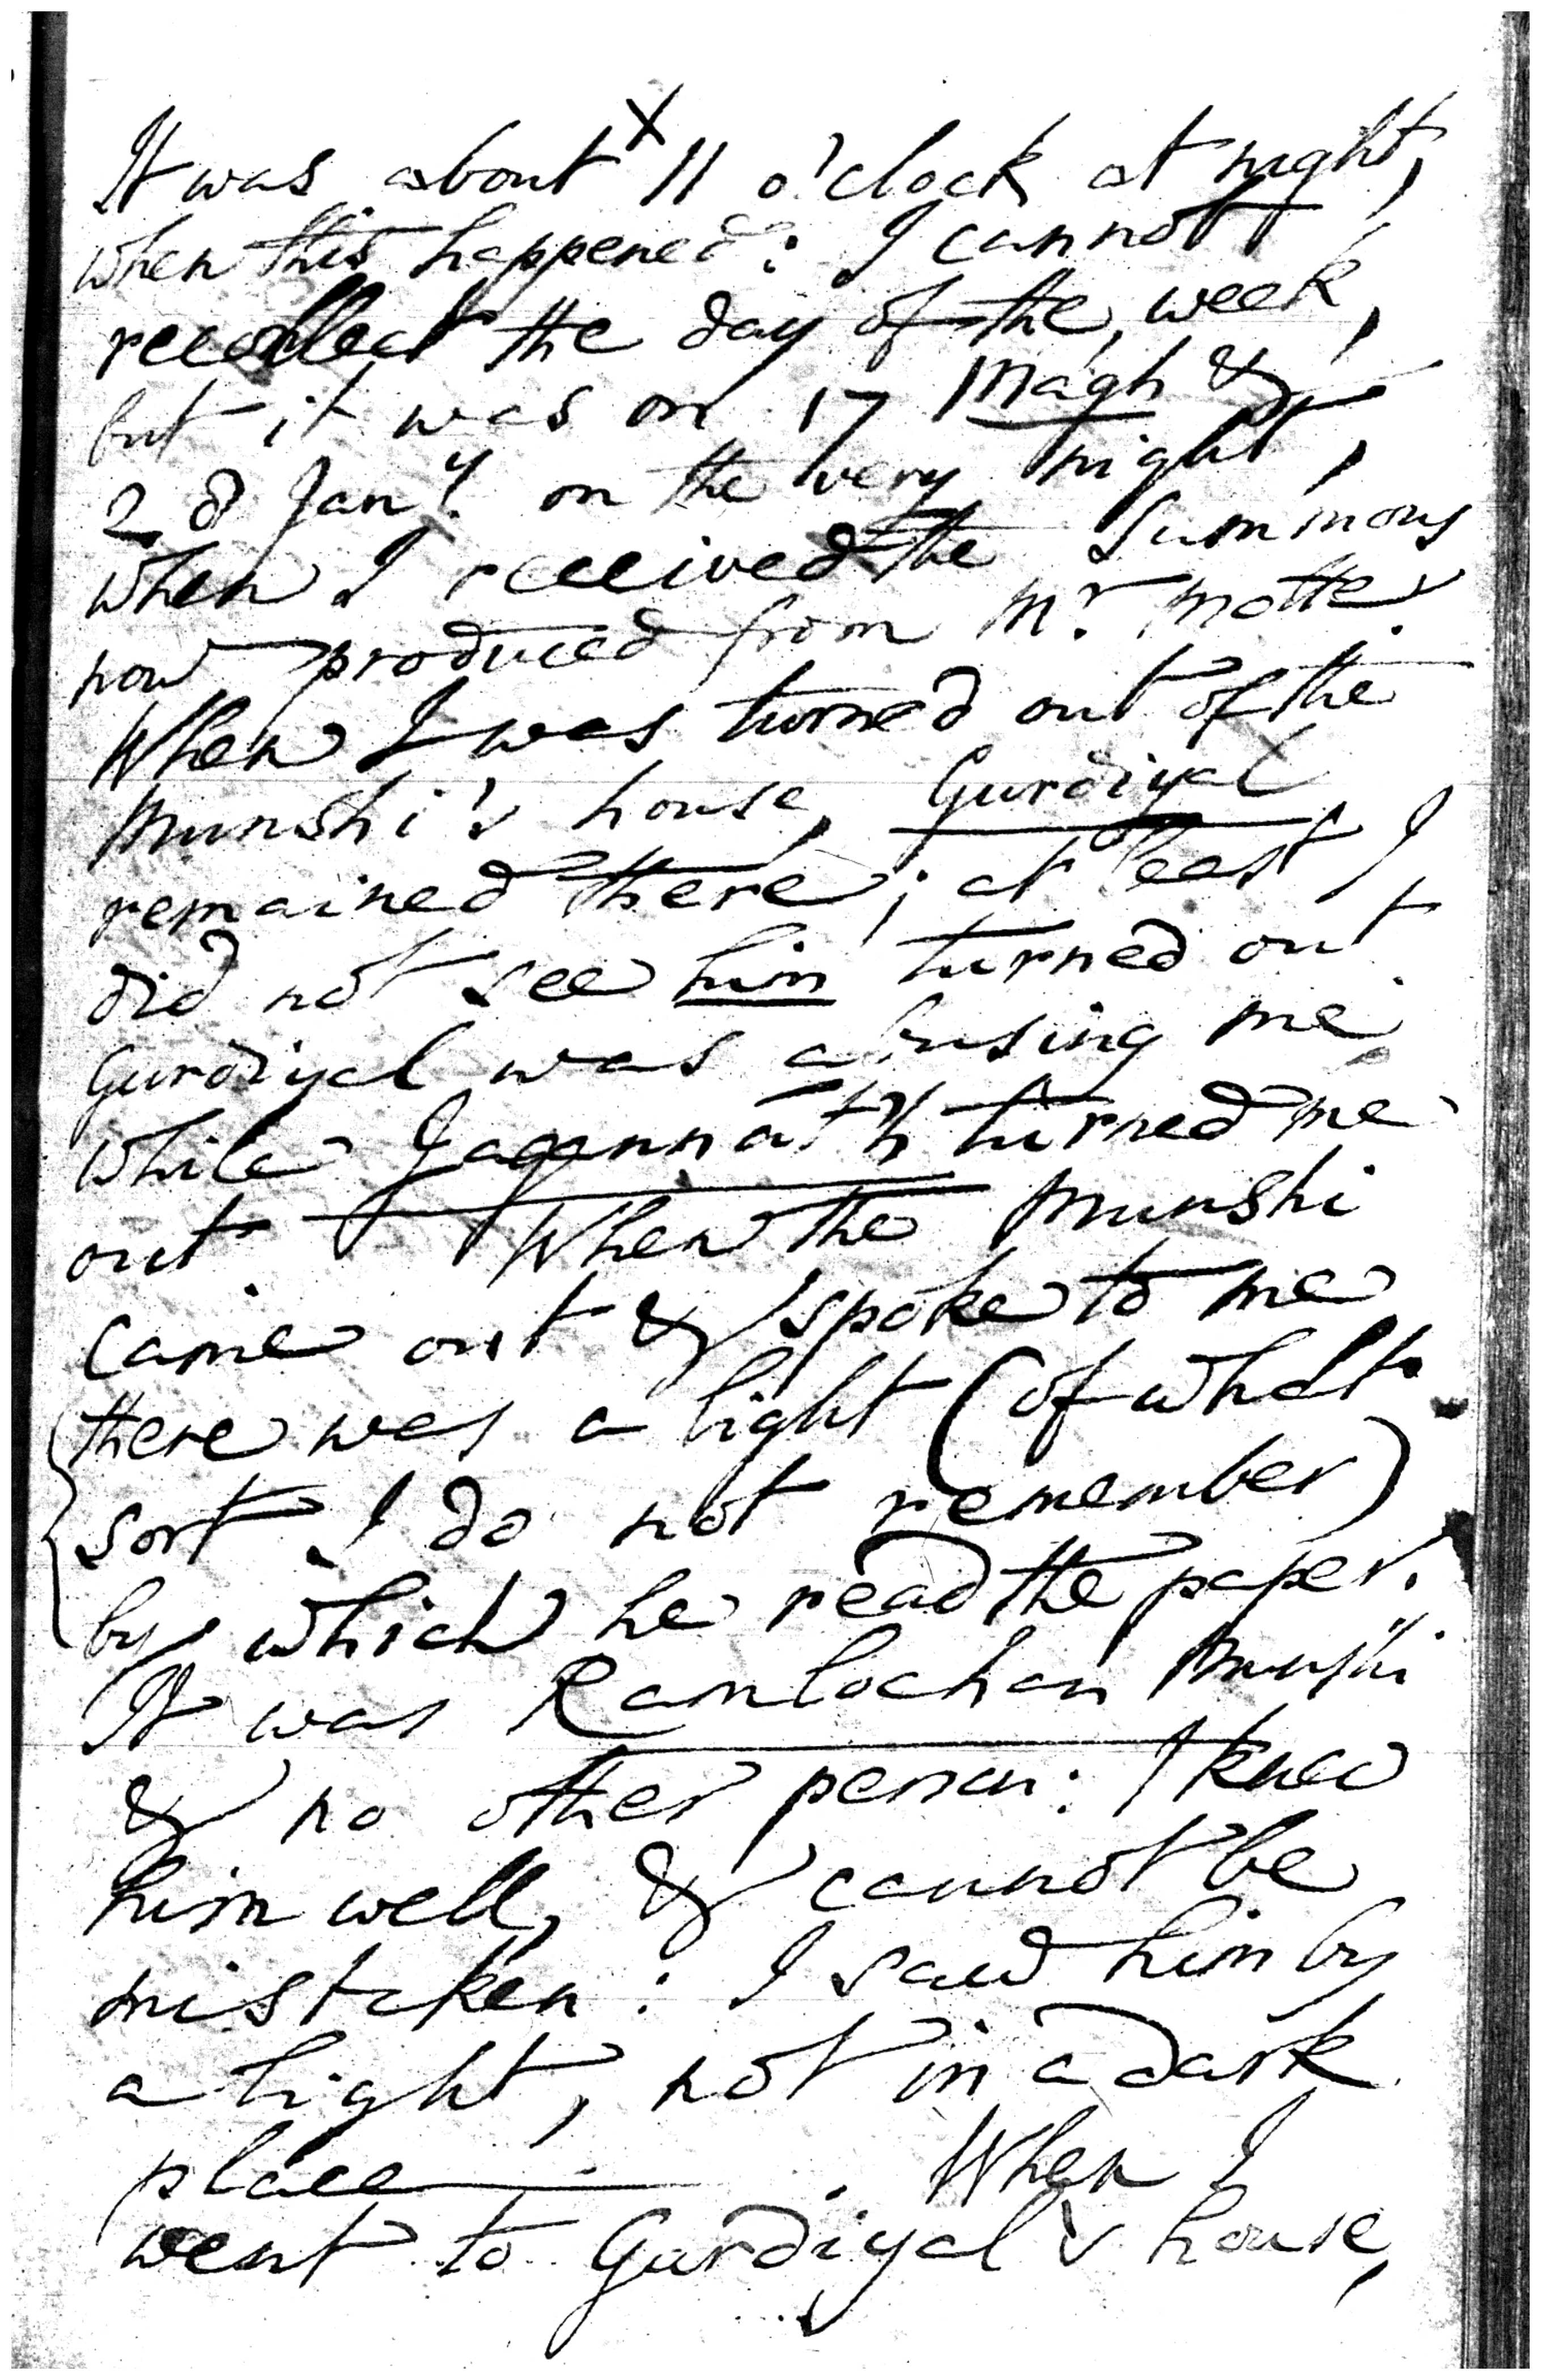 It was about x 11 o'clock at night,
when this happened: I cannot
recollect the day of the week,
but it was on 17 Mágh &
28 Jan.y on the very night,
when I received the Summons
now produced from Mr. Motte.
When I was turned out of the
Munshi's house, Gurdiyal
remained there; at least I
did not see him turned out.
Gurdiyal was abusing me
while Jagannáth turned me
out. When the Munshi
came out & spoke to me
there was a light (of what
sort I do not remember)
by which he read the paper.
It was Ramlochan Munshi
& no other person: I knew
him well, & cannot be
mistaken: I saw him by
a light, not in a dark
place. When I
went to Gurdiyal's house,